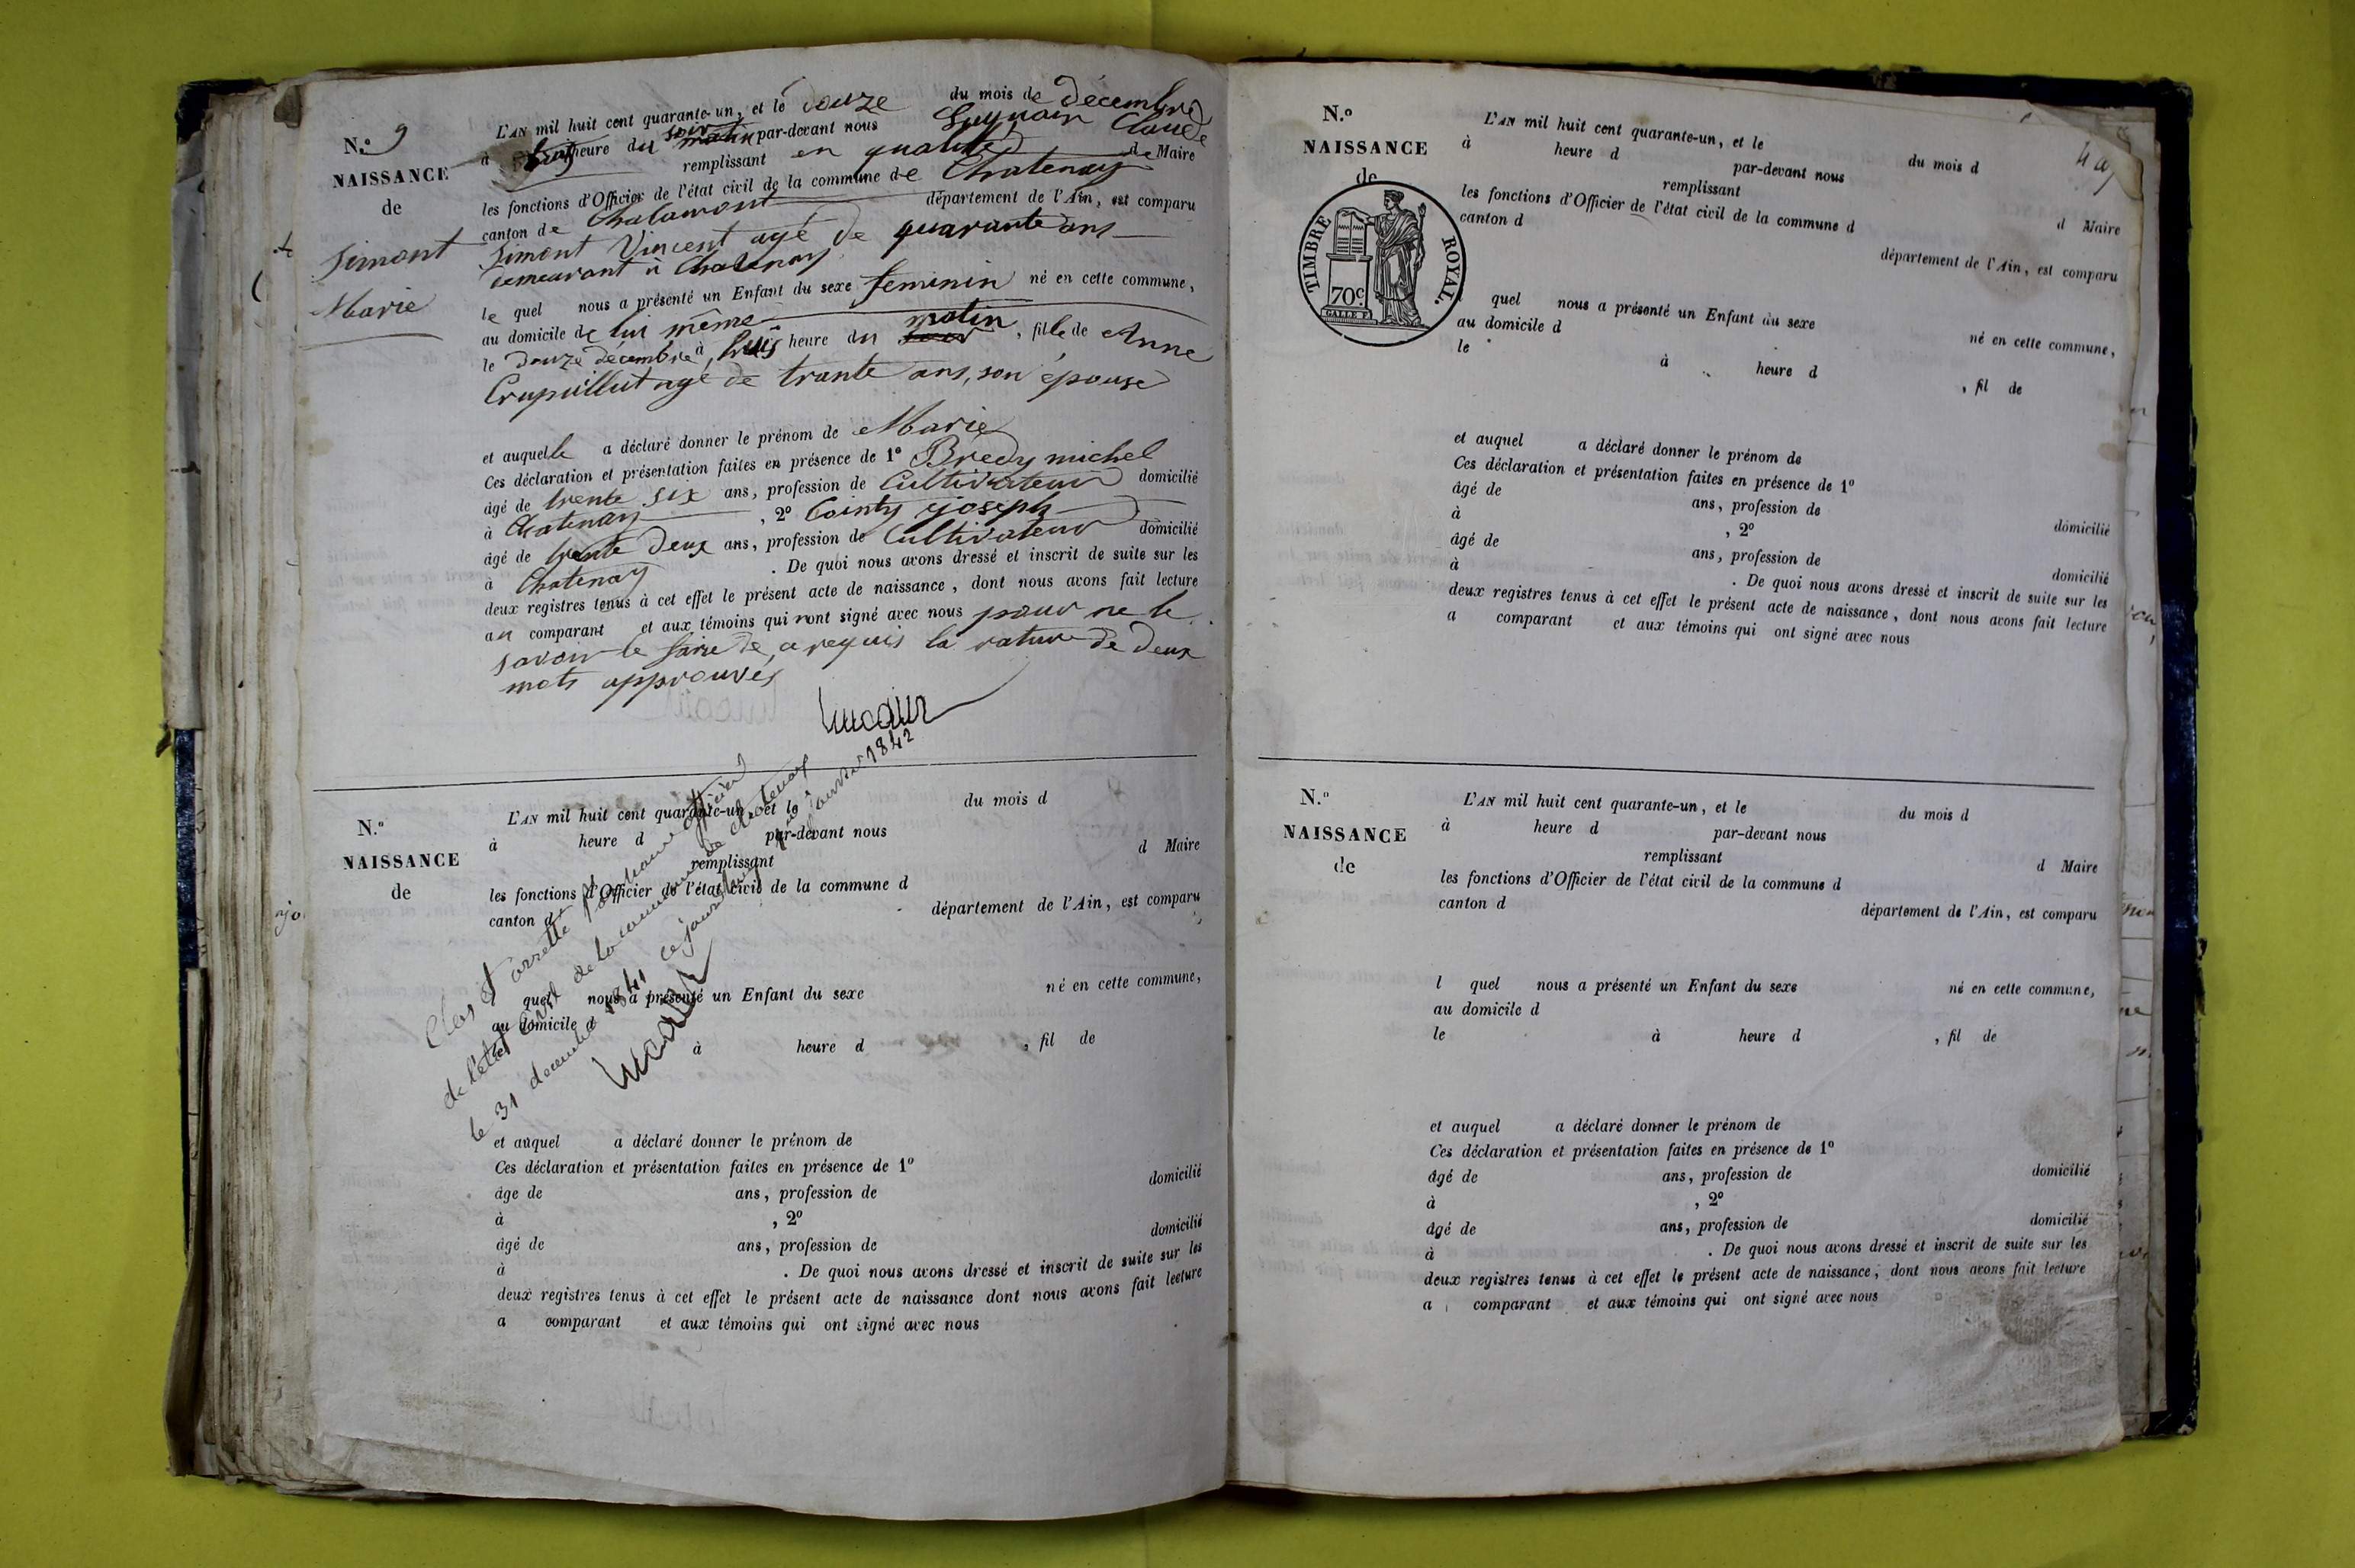 N.o 9
NAISSANCE
de
Simont
Marie
L'AN mil huit cent quarante-un, et le douze du mois de décembre
à heure du soir matin par-devant nous Claude
remplissant en qualité de Maire
les fonctions d'Officier de l'état civil de la commune de Chatenay
canton de Chalamont département de l'Ain, est comparu
Simont Vincent agé de quarante ans
demeurant à Chatenay
le quel nous a présenté un Enfant du sexe feminin né en cette commune,
au domicile de lui même
le douze décembre à heure du matin, fille de Anne
agé de trante ans, son épouse
et auquelle a déclaré donner le prénom de Marie
Ces déclaration et présentation faites en présence de 1º Brédy michel
âgé de trente six ans, profession de Cultivateur domicilié
à Chatenay, 2º Cointy joseph
âgé de trente deux ans, profession de Cultivateur domicilié
à Chatenay. De quoi nous avons dressé et inscrit de suite sur les
deux registres tenus à cet effet le présent acte de naissance, dont nous avons fait lecture
au comparant et aux témoins qui nont signé avec nous pour ne le
savoir le faire de, a requis la rature de deux
mots approuvés
N.o
NAISSANCE
de
L'AN mil huit cent quarante-un, et le du mois d
à heure d par-devant nous
remplissant d Maire
les fonctions d'Officier de l'état civil de la commune d
canton d département de l'Ain, est comparu
quel nous a présenté un Enfant du sexe né en cette commune,
au domicile d
à heure d, fil de
et auquel a déclaré donner le prénom de
Ces déclaration et présentation faites en présence de 1º
âge de ans, profession de domicilié
à, 2º
âgé de ans, profession de domicilié
à. De quoi nous avons dressé et inscrit de suite sur les
deux registres tenus à cet effet le présent acte de naissance dont nous avons fait lecture
a comparant et aux témoins qui ont signé avec nous
Clos et arretté par nous officier
de l'état civil de la commune de chatenay
le 31 decembre 1841 ce jourdhuy janvier 1842
N.o
NAISSANCE
de
TIMBRE ROYAL.
70c
L'AN mil huit cent quarante-un, et le du mois d
à heure d par-devant nous
remplissant d Maire
les fonctions d'Officier de l'état civil de la commune d
canton d département de l'Ain, est comparu
quel nous a présenté un Enfant du sexe né en cette commune,
au domicile d
le à heure d, fil de
et auquel a déclaré donner le prénom de
Ces déclaration et présentation faites en présence de 1º
âgé de ans, profession de domicilié
à, 2º
âgé de ans, profession de domicilié
à. De quoi nous avons dressé et inscrit de suite sur les
deux registres tenus à cet effet le présent acte de naissance, dont nous avons fait lecture
a comparant et aux témoins qui ont signé avec nous
N.o
NAISSANCE
de
L'AN mil huit cent quarante-un, et le du mois d
à heure d par-devant nous
remplissant d Maire
les fonctions d'Officier de l'état civil de la commune d
canton d département de l'Ain, est comparu
l quel nous a présenté un Enfant du sexe né en cette commune,
au domicile d
le à heure d, fil de
et auquel a déclaré donner le prénom de
Ces déclaration et présentation faites en présence de 1º
âgé de ans, profession de domicilié
à, 2º
âgé de ans, profession de domicilié
à. De quoi nous avons dressé et inscrit de suite sur les
deux registres tenus à cet effet le présent acte de naissance, dont nous avons fait lecture
a comparant et aux témoins qui ont signé avec nous